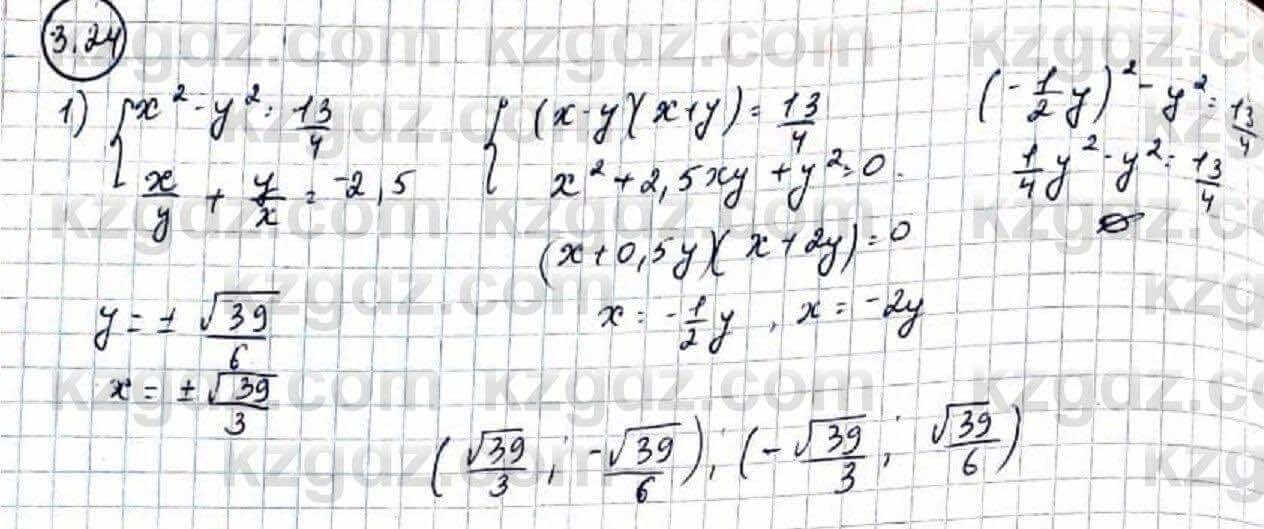 3.24
1) { x² - y² = 13/4
x/y + y/x = -2,5
{ (x-y)(x+y) = 13/4
x² + 2,5xy + y² = 0.
(x+0,5y)(x+2y) = 0
x = -1/2 y , x = -2y
(-1/2 y)² - y² = 13/4
1/4 y² - y² = 13/4
∅
y = ± √39/6
x = ± √39/3
(√39/3 ; -√39/6); (-√39/3 ; √39/6)
kzgdz.com kzgdz.com kzgdz.com
kzgdz.com kzgdz.com
kzgdz.com kzgdz.com kzgdz.com
kzgdz.com kzgdz.com
kzgdz.com kzgdz.com kzgdz.com
kzgdz.com kzgdz.com